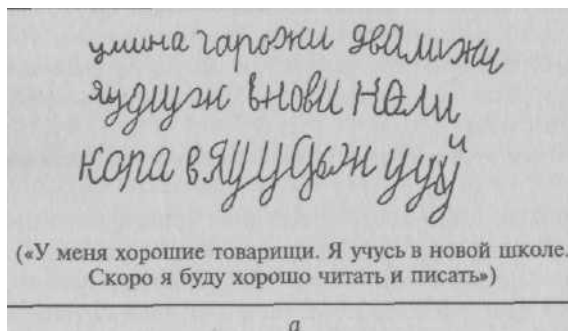 умина гарожи двалижи
яудщж внови нали
кора в яу удыж ууй
(«У меня хорошие товарищи. Я учусь в новой школе.
Скоро я буду хорошо читать и писать»)
а